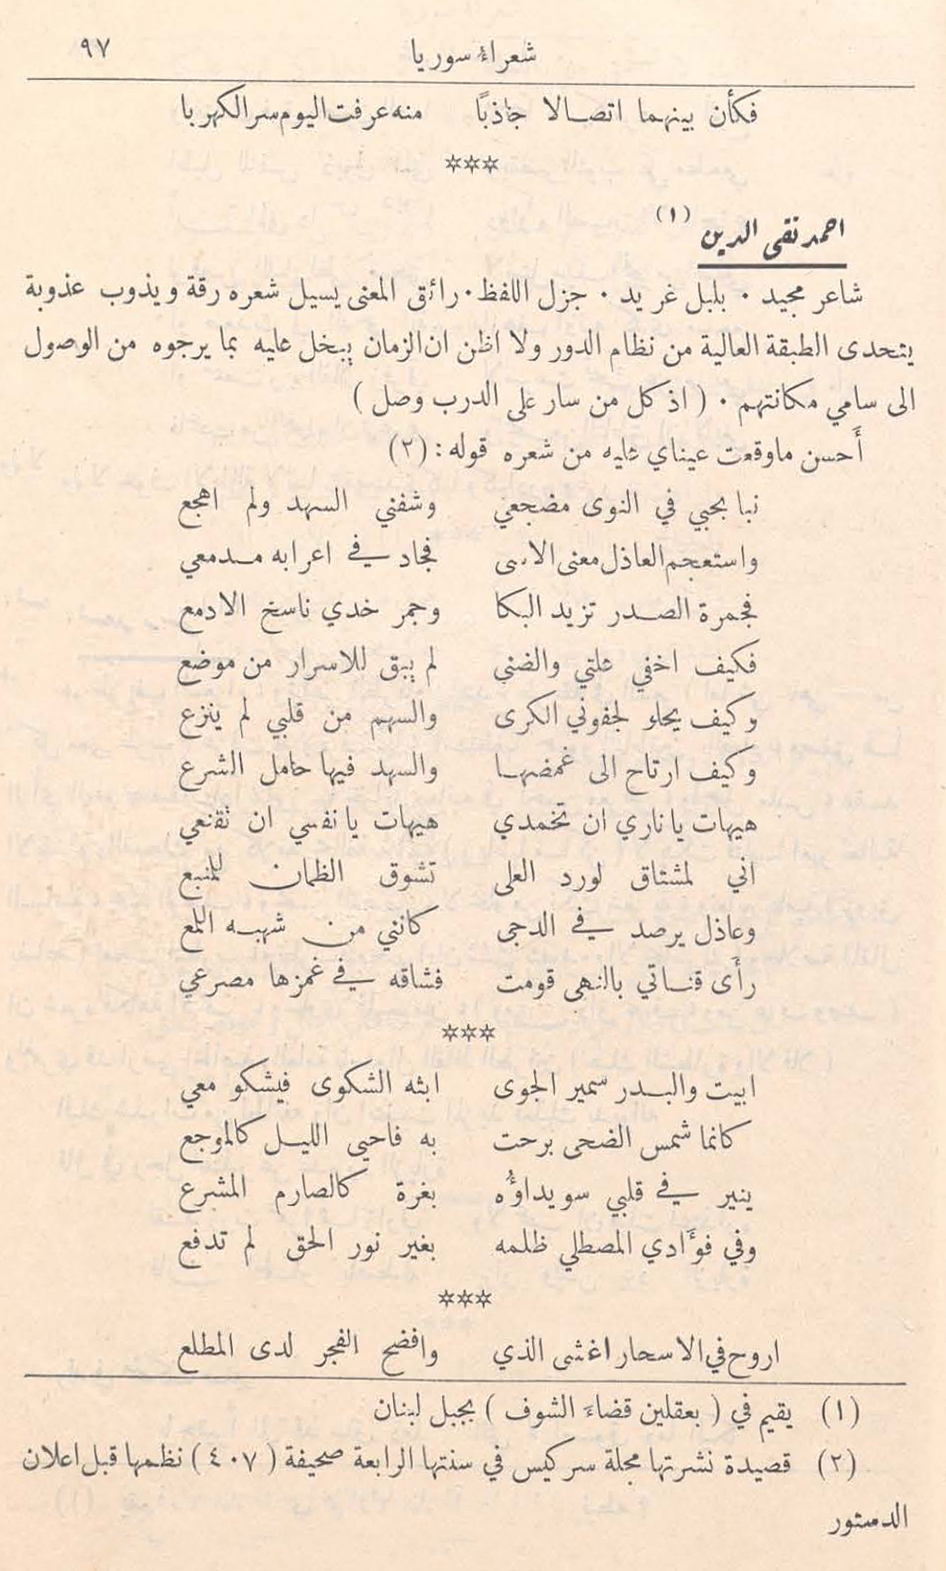 شعراء سوريا ٩٧
فكأن بينهما اتصالا جاذبًا منه عرفت اليوم سر الكهربا
***
احمد تقي الدين (١)
شاعر مجيد ٠ بلبل غريد ٠ جزل اللفظ ٠ رائق المعنى يسيل شعره رقة ويذوب عذوبة
يتحدى الطبقة العالية من نظام الدور ولا اظن ان الزمان يبخل عليه بما يرجوه من الوصول
الى سامي مكانتهم ٠ ( اذ كل من سار على الدرب وصل )
أحسن ماوقعت عيناي عليه من شعره قوله : (٢)
نبا بحبي في النوى مضجعي وشفني السهد ولم اهجع
واستعجم العاذل معنى الاسى فجاد في اعرابه مدمعي
فجمرة الصدر تزيد البكا وجمر خدي ناسخ الادمع
فكيف اخفي علتي والضنى لم يبق للاسرار من موضع
وكيف يحلو لجفوني الكرى والسهم من قلبي لم ينزع
وكيف ارتاح الى غمضها والسهد فيها حامل الشرع
هيهات يا ناري ان تخمدي هيهات يا نفسي ان تقنعي
اني لمشتاق لورد العلى تشوق الظمان للمنبع
وعاذل يرصد في الدجى كانني من شهبه اللمع
رأى قناتي بالنهى قومت فشاقه في غمزها مصرعي
***
ابيت والبدر سمير الجوى ابثه الشكوى فيشكو معي
كانما شمس الضحى برحت به فاحيى الليل كالموجع
ينير في قلبي سويداؤُه بغرة كالصارم المشرع
وفي فوأدي المصطلي ظلمه بغير نور الحق لم تدفع
***
اروح في الاسحار اغشى الذي وافضح الفجر لدى المطلع
(١) يقيم في ( بعقلين قضاء الشوف ) بجبل لبنان
(٢) قصيدة نشرتها مجلة سركيس في سنتها الرابعة صحيفة ( ٤٠٧ ) نظمها قبل اعلان
الدستور